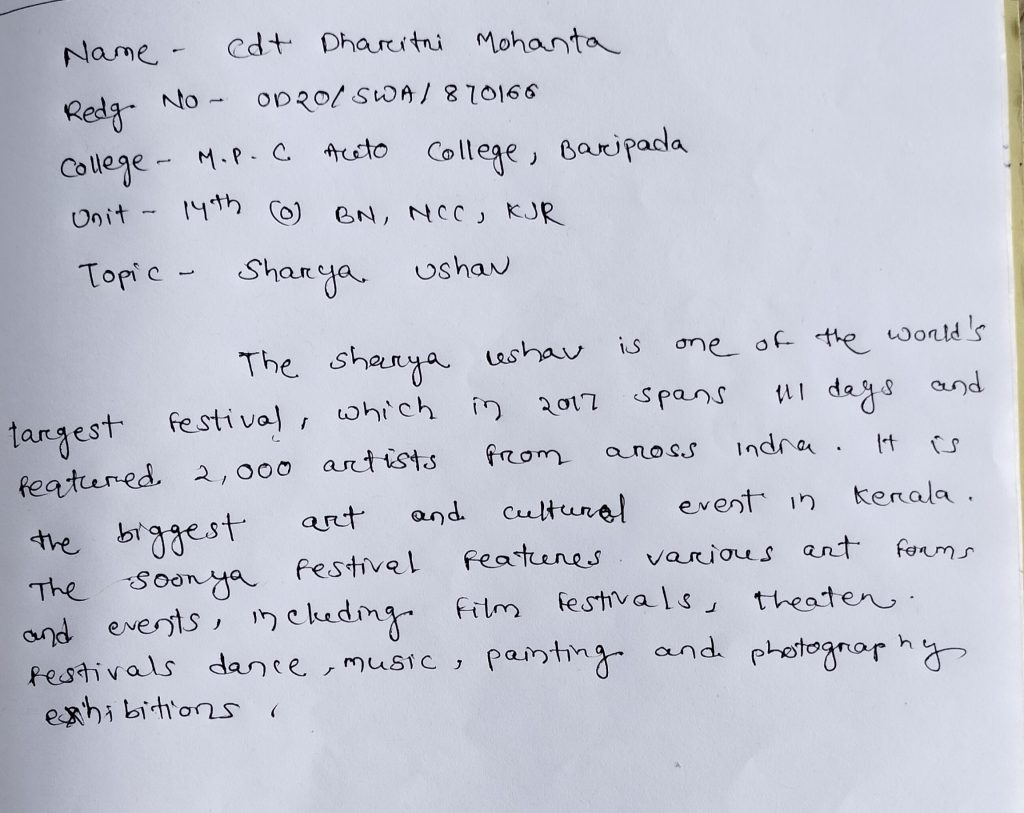 Name - Cdt Dharitri Mohanta
Redg. No - OD20/SWA/870166
College - M.P.C Auto College, Baripada
Unit - 14th (O) BN, NCC, KJR
Topic - Sharya ushav
The sharya ushav is one of the world's
largest festival, which in 2017 spans 111 days and
featured 2,000 artists from aross India. It is
the biggest art and cultural event in Kerala.
The Soonya festival features various art forms
and events, including film festivals, theater
festivals dance, music, painting and photography
exhibitions.